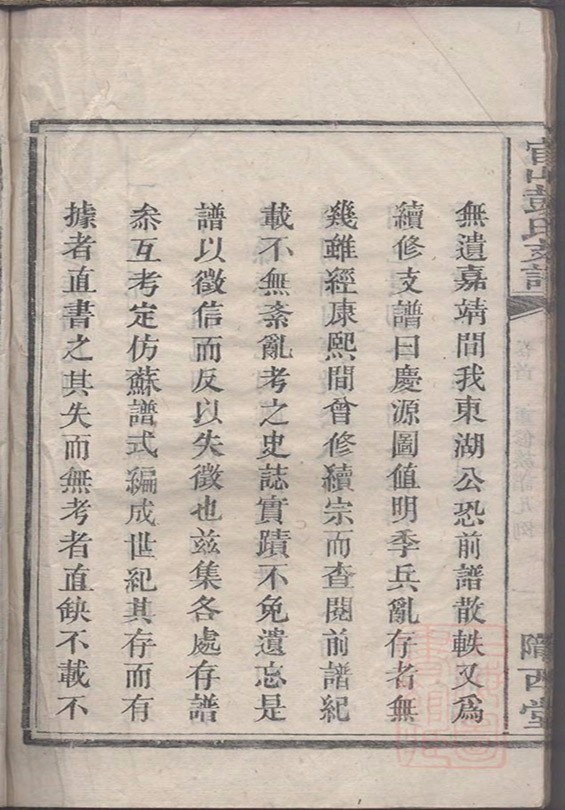 無遺嘉靖間我東湖公恐前譜散軼又爲
續修支譜曰慶源圖值明季兵亂存者無
幾雖經康熙間曾修續宗而查閱前譜紀
載不無紊亂考之史誌實蹟不免遺忘是
譜以徵信而反以失徵也兹集各處存譜
叅互考定仿蘇譜式編成世紀其存而有
據者直書之其失而無考者直缺不載不
彭氏支譜
卷首
隴西堂